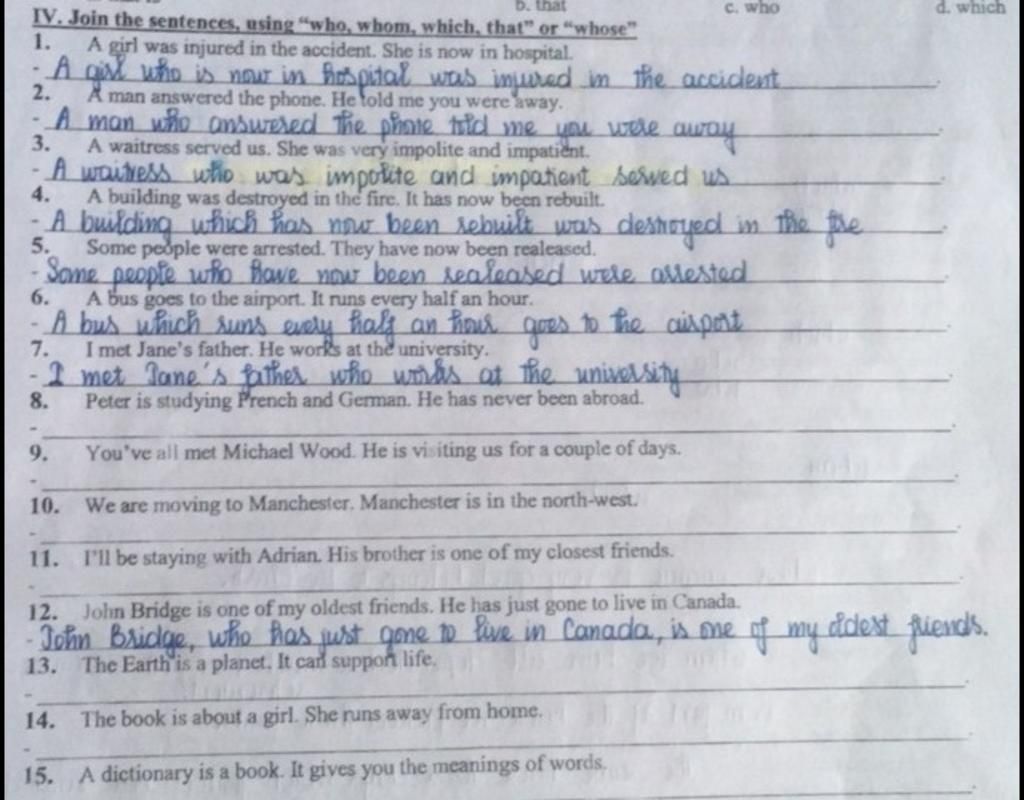 b. that c. who d. which
IV. Join the sentences, using "who, whom, which, that" or "whose"
1. A girl was injured in the accident. She is now in hospital.
- A girl who is now in hospital was injured in the accident.
2. A man answered the phone. He told me you were away.
- A man who answered the phone told me you were away.
3. A waitress served us. She was very impolite and impatient.
- A waitress who was impolite and impatient served us.
4. A building was destroyed in the fire. It has now been rebuilt.
- A building which has now been rebuilt was destroyed in the fire.
5. Some people were arrested. They have now been realeased.
- Some people who have now been realeased were arrested.
6. A bus goes to the airport. It runs every half an hour.
- A bus which runs every half an hour goes to the airport.
7. I met Jane's father. He works at the university.
- I met Jane's father who works at the university.
8. Peter is studying French and German. He has never been abroad.
- .
9. You've all met Michael Wood. He is visiting us for a couple of days.
- .
10. We are moving to Manchester. Manchester is in the north-west.
- .
11. I'll be staying with Adrian. His brother is one of my closest friends.
- .
12. John Bridge is one of my oldest friends. He has just gone to live in Canada.
- John Bridge, who has just gone to live in Canada, is one of my oldest friends.
13. The Earth is a planet. It can support life.
- .
14. The book is about a girl. She runs away from home.
- .
15. A dictionary is a book. It gives you the meanings of words.